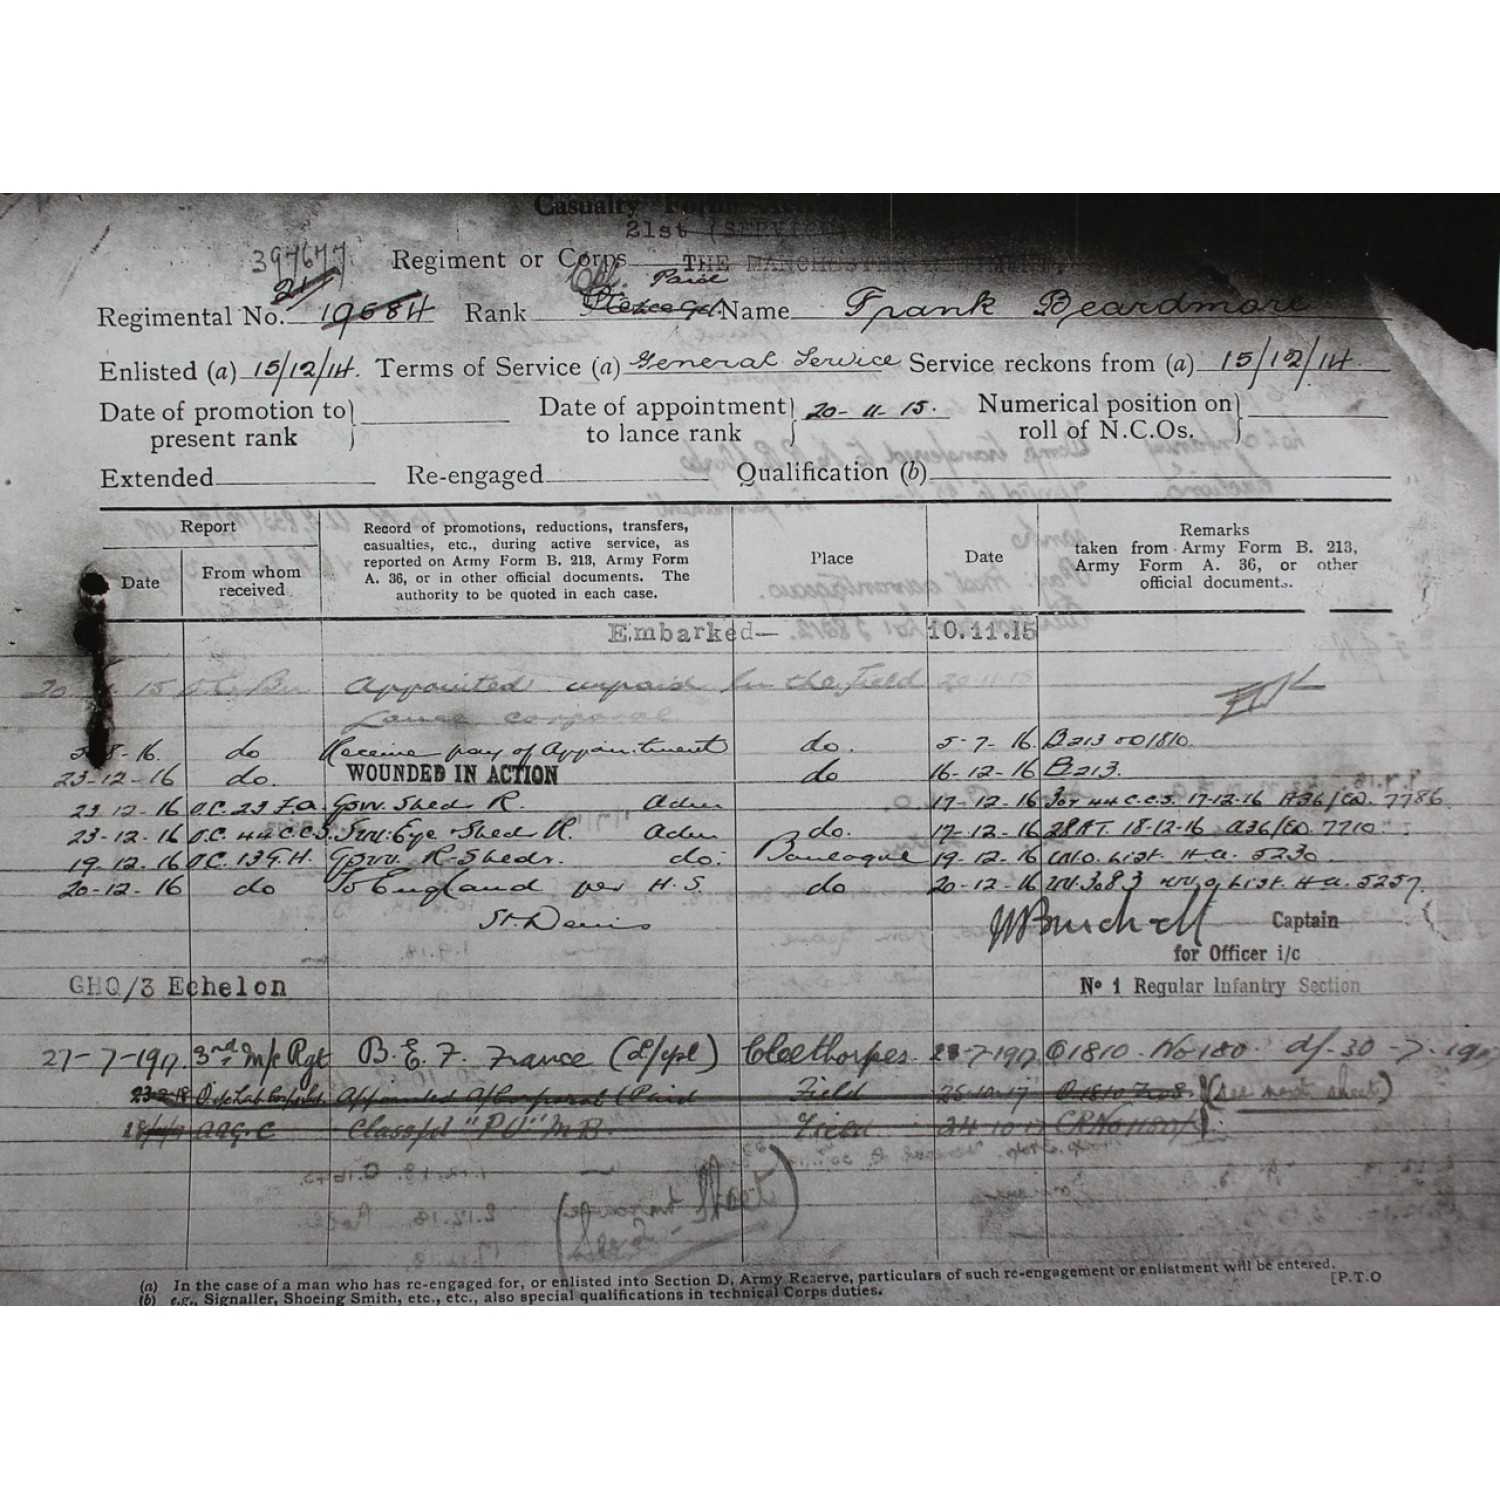 Casualty Form
21st (SERVICE)
397677 Regiment or Corps THE MANCHESTER
Cpl. Paid
21/
Regimental No. 19684 Rank Name Frank Beardmore
Enlisted (a) 15/12/14. Terms of Service (a) General Service Service reckons from (a) 15/12/14.
Date of promotion to present rank Date of appointment to lance rank 20-11-15. Numerical position on roll of N.C.Os.
Extended Re-engaged Qualification (b)
Report
Date
From whom received
Record of promotions, reductions, transfers, casualties, etc., during active service, as reported on Army Form B. 213, Army Form A. 36, or in other official documents. The authority to be quoted in each case.
Place
Date
Remarks taken from Army Form B. 213, Army Form A. 36, or other official documents.
Embarked— 10.11.15
20 15 Appointed unpaid In the field 20 11 15
Lance corporal
5-8-16. do Receive pay of Appointment do. 5-7-16. B213 O1810.
23-12-16 do. WOUNDED IN ACTION do 16-12-16 B213.
23-12-16 O.C. 23 F.a. Gsw. Shed. R. Adm 17-12-16 44 C.C.S. 17-12-16 A36/ 7786
23-12-16 O.C. 44 C.C.S. Eye Shed R. Adm do. 17-12-16 28 A.T. 18-12-16 a36/ 7710
19-12-16 O.C. 13 G.H. Gsw. R-Sheds. do. Boulogne 19-12-16 List. H.a. 5230
20-12-16 do To England per H.S. do 20-12-16 W.3083 List. H.a. 5257.
St. Denis
Captain
for Officer i/c
GHQ/3 Echelon
No 1 Regular Infantry Section
27-7-1917. 3rd M/c Rgt B.E.F. France (L/cpl) Cleethorpes. -7-1917 O1810. No 180. d/-30-7-1917
23-2-18 Appointed A/Corporal (Paid Field 26-10-17 O.1810 (see next sheet)
a.a.g.C Classf'd "PU" M.B. Field 24-10-17
(a) In the case of a man who has re-engaged for, or enlisted into Section D, Army Reserve, particulars of such re-engagement or enlistment will be entered.
(b) e.g., Signaller, Shoeing Smith, etc., etc., also special qualifications in technical Corps duties.
[P.T.O